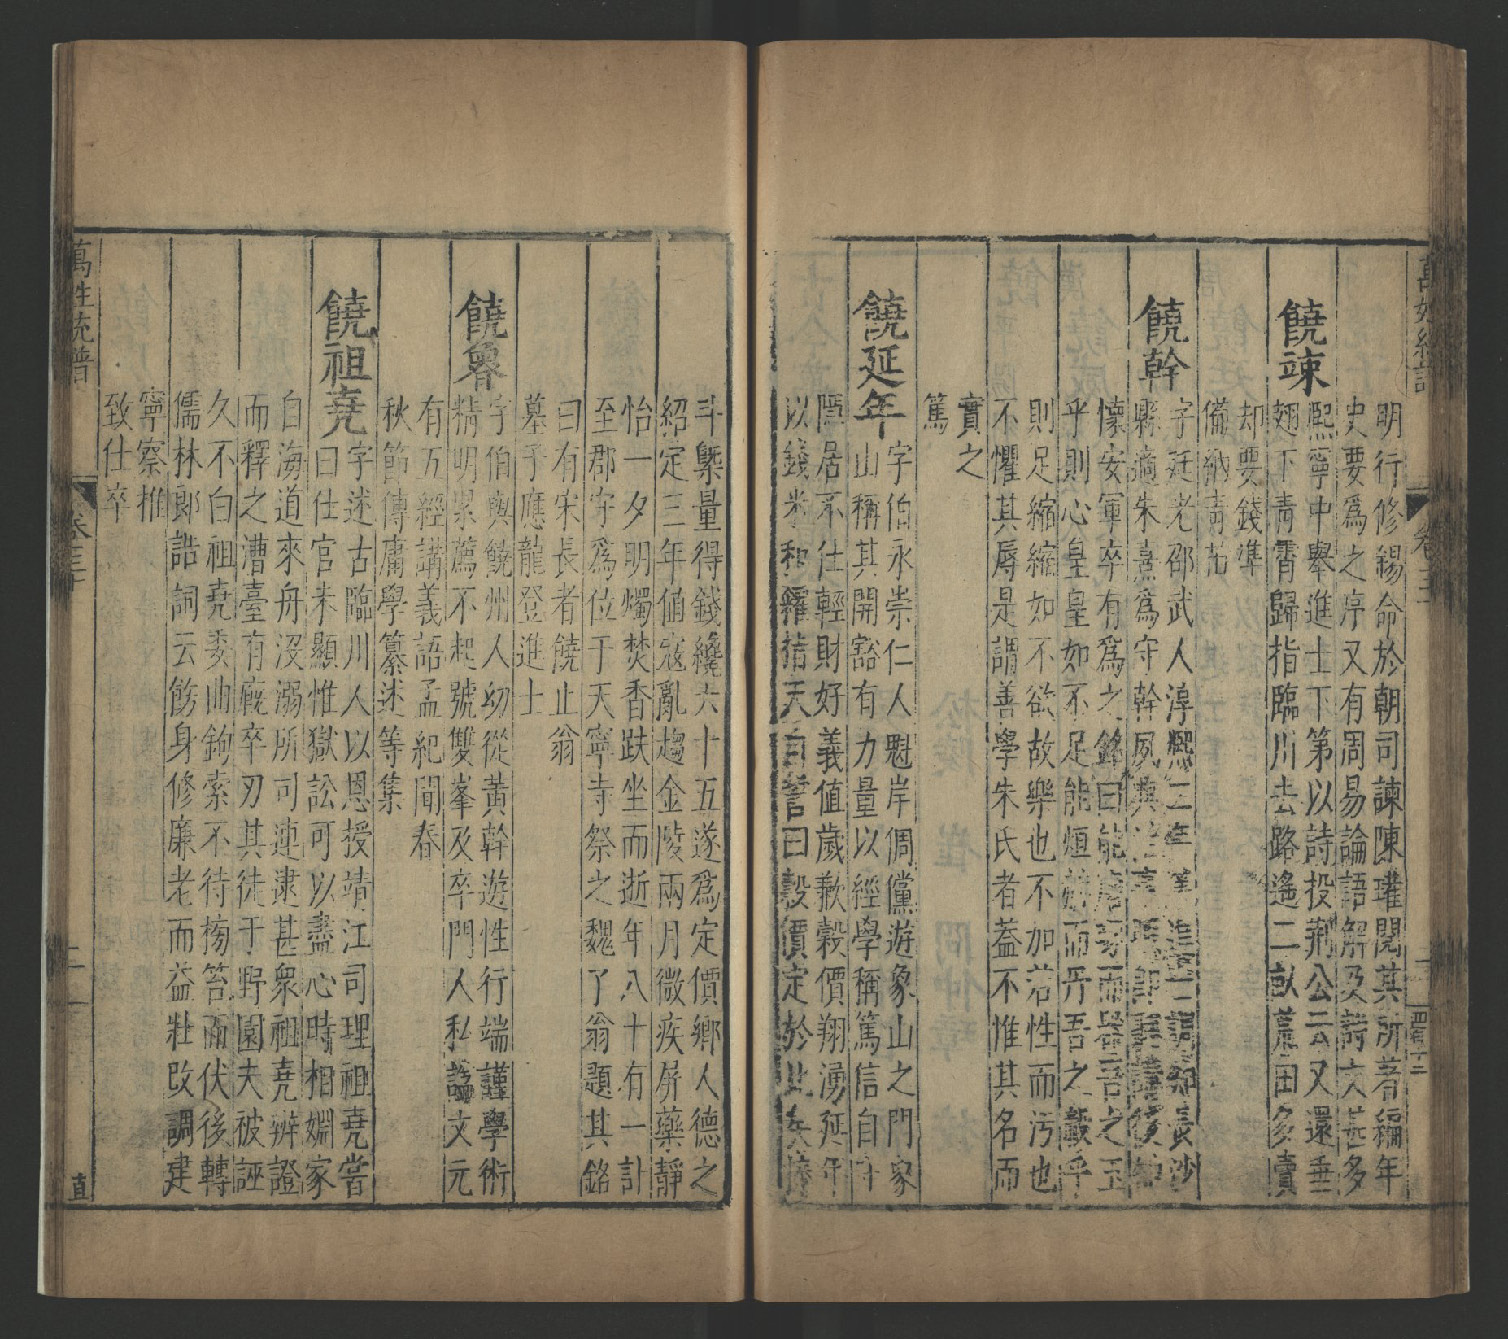 明行修錫命於朝司諫陳瓘閱其所著編年
史要爲之序又有周易論語解及詩文甚多
饒竦
熙寧中舉進士下第以詩投荆公云又還垂
翅下青霄歸指臨川去路遙二畝荒田多賣
却要錢準
備納青苗
饒幹
字廷老邵武人淳熙二年進士調知長沙
縣適朱熹爲守幹夙興
懷安軍卒有爲之銘曰能
乎則心皇皇如不足能
則足縮縮如不欲故樂也不加若性而污也
不懼其辱是謂善學朱氏者葢不惟其名而
實之
篤
饒延年
字伯永崇仁人魁岸倜儻遊象山之門家
山稱其開豁有力量以經學稱篤信自守
隱居不仕輕財好義値歲歉穀價翔湧延年
以錢米和糴指天自誓曰穀價定於此矣
斗槩量得錢纔六十五遂爲定價鄉人德之
紹定三年値寇亂趨金陵兩月微疾屏藥靜
怡一夕明燭焚香趺坐而逝年八十有一計
至郡守爲位于天寧寺祭之魏了翁題其銘
曰有宋長者饒止翁
墓子應龍登進士
饒魯
字伯輿饒州人幼從黃幹遊性行端謹學術
精明累薦不起號雙峯及卒門人私諡文元
有五經講義語孟紀聞春
秋節傳庸學纂述等集
饒祖堯
字述古臨川人以恩授靖江司理祖堯嘗
曰仕官未顯惟獄訟可以盡心時相姻家
自海道來舟沒溺所可逮甚衆祖堯辨證
而釋之漕臺有廐卒刃其徒于野園夫被誣
久不白祖堯委曲鉤索不待搒笞而伏後轉
儒林郞誥詞云飭身修廉老而益壯改調建
寧察推
致仕卒
萬姓統譜
卷三十
直